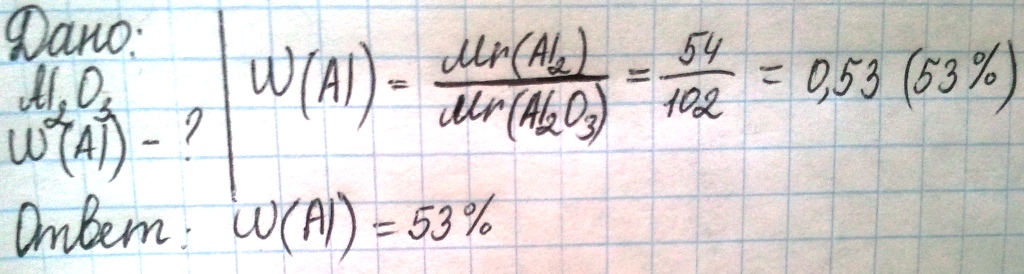 Дано:
Al₂O₃
W(Al) - ?
W(Al) = Mr(Al₂) / Mr(Al₂O₃) = 54 / 102 = 0,53 (53%)
Ответ: W(Al) = 53%